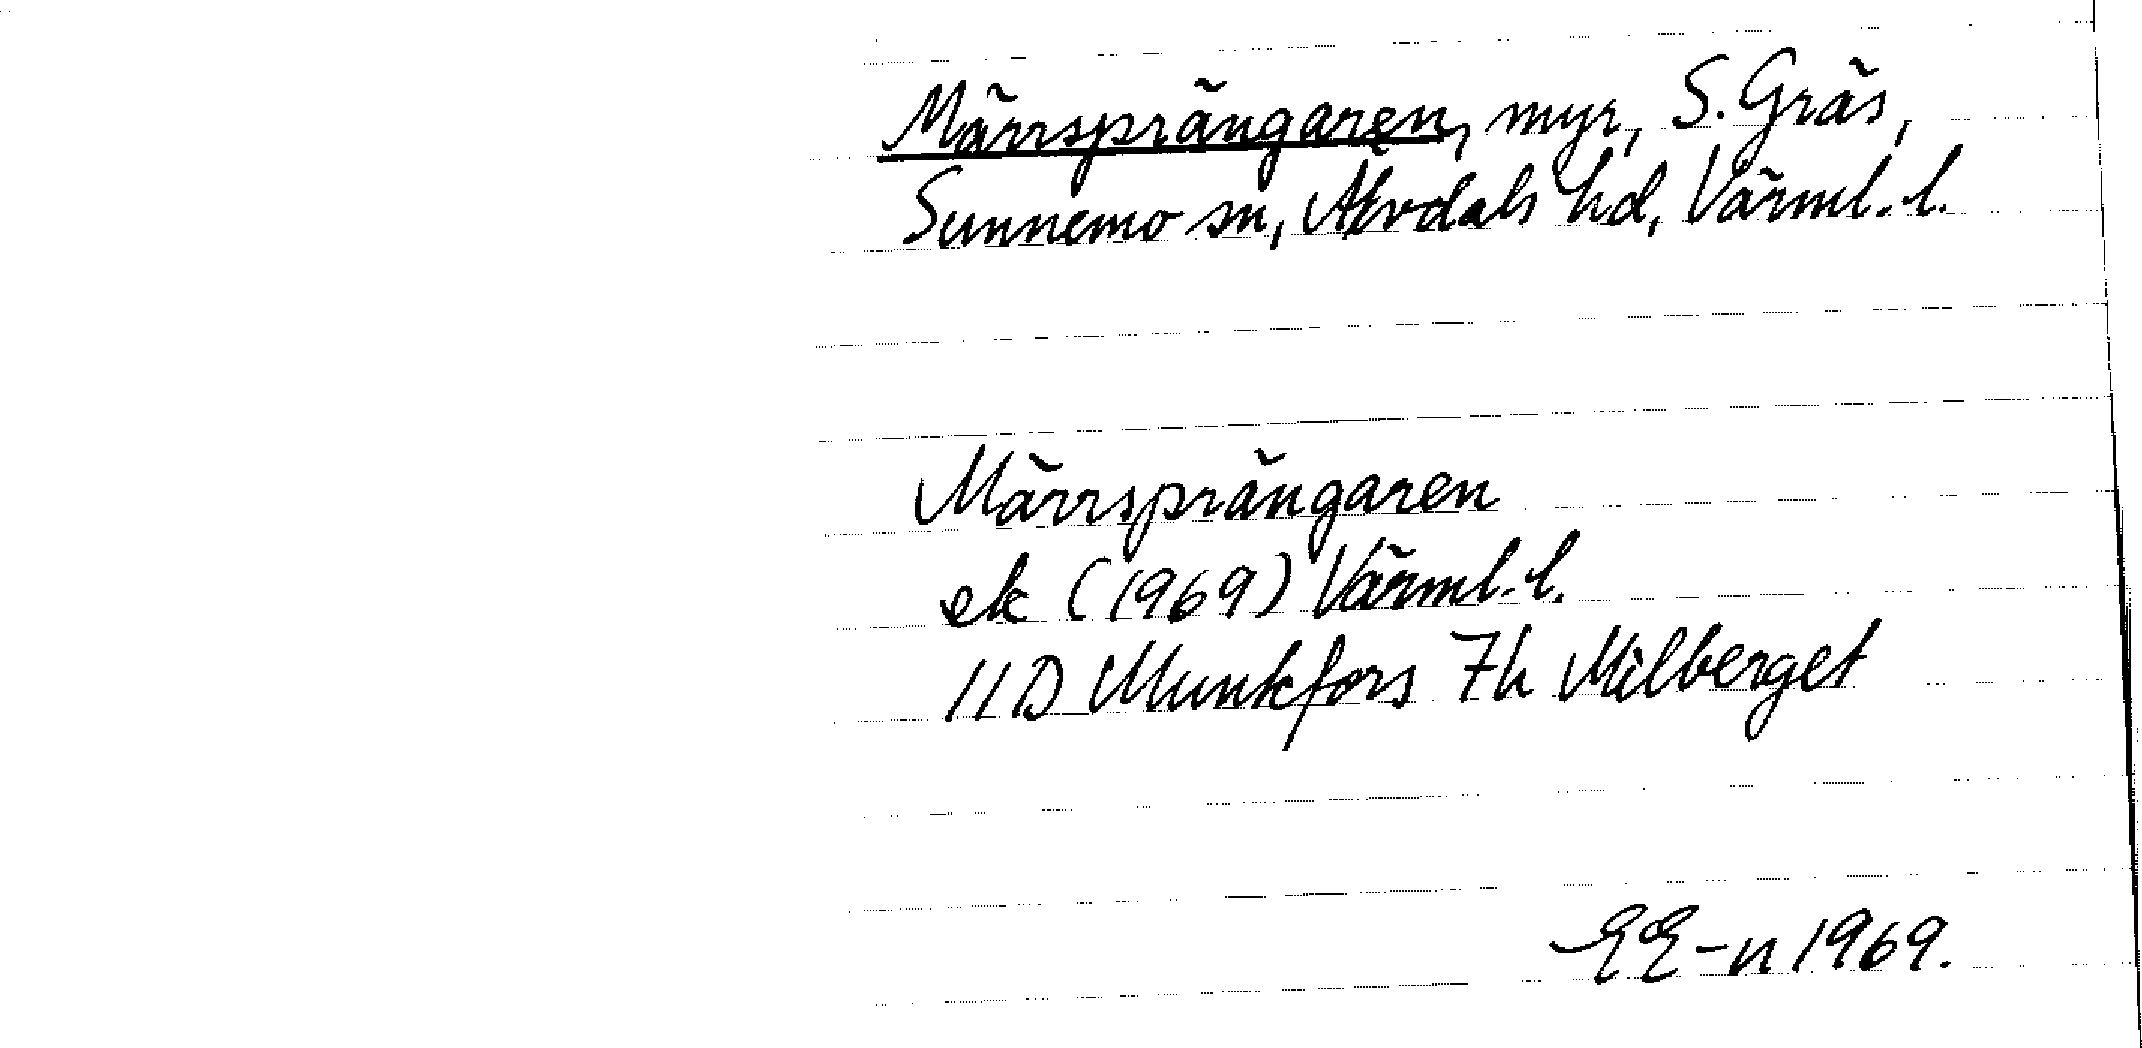 Märrsprängaren, myr, S. Gräs,
Sunnemo sn, Älvdals hd, Värml. l.
Märrsprängaren
ek (1969) Värml. l.
11D Munkfors 7h Milberget
EE-n 1969.